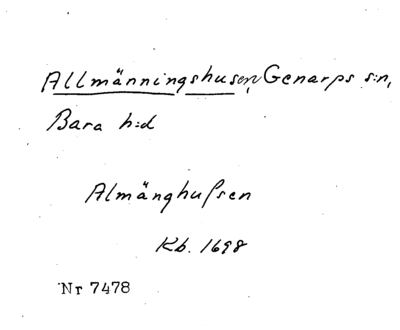 Allmänningshusen, Genarps s:n,
Bara h:d
Almänghuſsen
Kb. 1698
Nr 7478